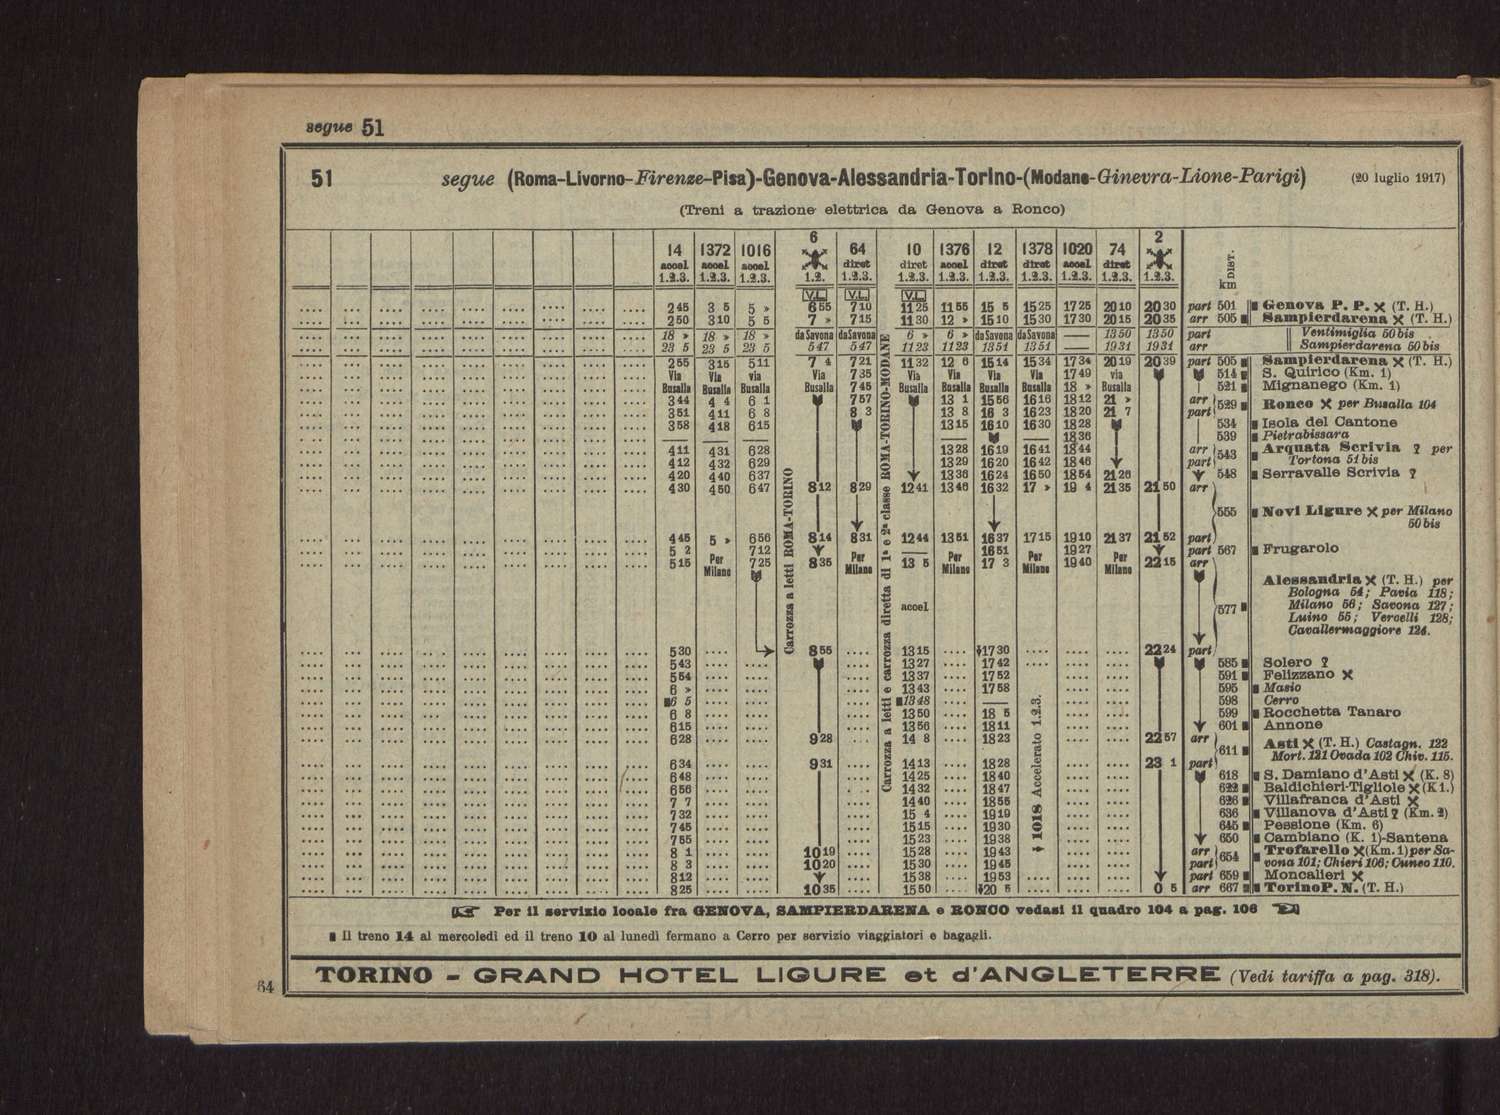 segue 51
51 segue (Roma-Livorno-Firenze-Pisa)-Genova-Alessandria-Torino-(Modane-Ginevra-Lione-Parigi) (20 luglio 1917)
(Treni a trazione elettrica da Genova a Ronco)
14 1372 1016 6 64 10 1376 12 1378 1020 74 2
accel. accel. accel. diret diret accel. diret diret accel. diret
1.2.3. 1.2.3. 1.2.3. 1.2. 1.2.3. 1.2.3. 1.2.3. 1.2.3. 1.2.3. 1.2.3. 1.2.3. 1.2.3. km DIST.
V.L. V.L. V.L.
2 45 3 5 5 » 6 55 7 10 11 25 11 55 15 5 15 25 17 25 20 10 20 30 part 501 Genova P. P. (T. H.)
2 50 3 10 5 5 7 » 7 15 11 30 12 » 15 10 15 30 17 30 20 15 20 35 arr 505 Sampierdarena (T. H.)
18 » 18 » 18 » da Savona da Savona 6 » 6 » da Savona da Savona 13 50 13 50 part Ventimiglia 50 bis
23 5 23 5 23 5 5 47 5 47 11 23 11 23 13 51 13 51 19 31 19 31 arr Sampierdarena 50 bis
2 55 3 15 5 11 7 4 7 21 11 32 12 6 15 14 15 34 17 34 20 19 20 39 part 505 Sampierdarena (T. H.)
Via Via via Via 7 35 Via Via Via Via 17 49 via 514 S. Quirico (Km. 1)
Busalla Busalla Busalla Busalla 7 45 Busalla Busalla Busalla Busalla 18 » Busalla 521 Mignanego (Km. 1)
3 44 4 4 6 1 7 57 13 1 15 56 16 16 18 12 21 » arr
3 51 4 11 6 8 8 3 13 8 16 3 16 23 18 20 21 7 part 529 Ronco per Busalla 104
3 58 4 18 6 15 13 15 16 10 16 30 18 28 534 Isola del Cantone
18 36 539 Pietrabissara
4 11 4 31 6 28 13 28 16 19 16 41 18 44 arr 543 Arquata Scrivia per
4 12 4 32 6 29 13 29 16 20 16 42 18 46 part Tortona 51 bis
4 20 4 40 6 37 13 36 16 24 16 50 18 54 21 26 548 Serravalle Scrivia
4 30 4 50 6 47 8 12 8 29 12 41 13 46 16 32 17 » 19 4 21 35 21 50 arr
555 Novi Ligure per Milano
50 bis
4 45 5 » 6 56 8 14 8 31 12 44 13 51 16 37 17 15 19 10 21 37 21 52 part
5 2 7 12 16 51 19 27 part 567 Frugarolo
5 15 Per Milano 7 25 8 35 Per Milano 13 5 Per Milano 17 3 Per Milano 19 40 Per Milano 22 15 arr
Alessandria (T. H.) per
Bologna 54; Pavia 118;
accel 577 Milano 56; Savona 127;
Luino 55; Vercelli 128;
Cavallermaggiore 124.
5 30 8 55 13 15 17 30 22 24 part
5 43 13 27 17 42 585 Solero
5 54 13 37 17 52 591 Felizzano
6 » 13 43 17 58 595 Masio
6 5 13 48 598 Cerro
6 8 13 50 18 5 599 Rocchetta Tanaro
6 15 13 56 18 11 601 Annone
6 28 9 28 14 8 18 23 22 57 arr 611 Asti (T. H.) Castagn. 122
Mort. 121 Ovada 102 Chiv. 115.
6 34 9 31 14 13 18 28 23 1 part
6 48 14 25 18 40 618 S. Damiano d'Asti (K. 8)
6 56 14 32 18 47 622 Baldichieri-Tigliole (K 1.)
7 7 14 40 18 55 626 Villafranca d'Asti
7 32 15 4 19 19 636 Villanova d'Asti (Km. 2)
7 45 15 15 19 30 645 Pessione (Km. 6)
7 55 15 23 19 38 650 Cambiano (K. 1)-Santena
8 1 10 19 15 28 19 43 arr 654 Trofarello (Km. 1) per Sa-
8 3 10 20 15 30 19 45 part vona 101; Chieri 106; Cuneo 110.
8 12 15 38 19 53 part 659 Moncalieri
8 25 10 35 15 50 20 5 0 5 arr 667 Torino P. N. (T. H.)
Carrozza a letti ROMA-TORINO
Carrozza a letti e carrozza diretta di 1ª e 2ª classe ROMA-TORINO-MODANE
1018 Accelerato 1.2.3.
Per il servizio locale fra GENOVA, SAMPIERDARENA e RONCO vedasi il quadro 104 a pag. 106
Il treno 14 al mercoledì ed il treno 10 al lunedì fermano a Cerro per servizio viaggiatori e bagagli.
TORINO - GRAND HOTEL LIGURE et d'ANGLETERRE (Vedi tariffa a pag. 318).
64